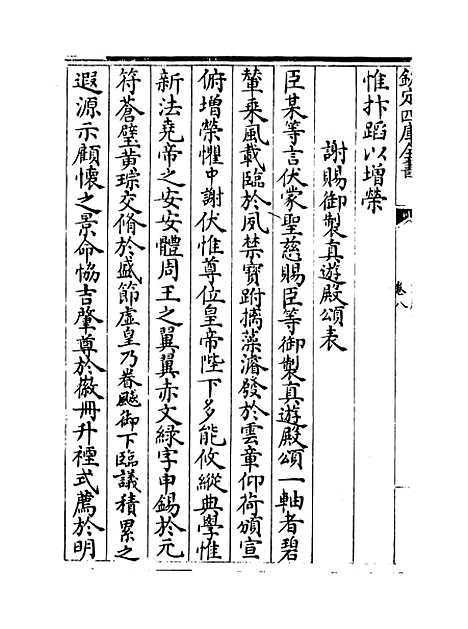 欽定四庫全書
卷八
惟抃蹈以增榮
謝賜御製真遊殿頌表
臣某等言伏蒙聖慈賜臣等御製真遊殿頌一軸者碧
輦乘風載臨於夙禁寶跗摛藻濬發於雲章仰荷頒宣
俯增榮懼中謝伏惟尊位皇帝陛下多能攸縱典學惟
新法堯帝之安安體周王之翼翼赤文綠字申錫於元
符蒼璧黃琮交脩於盛節虛皇乃眷飈御下臨議積累之
遐源示顧懷之景命恊吉肇尊於徽冊升禋式薦於明